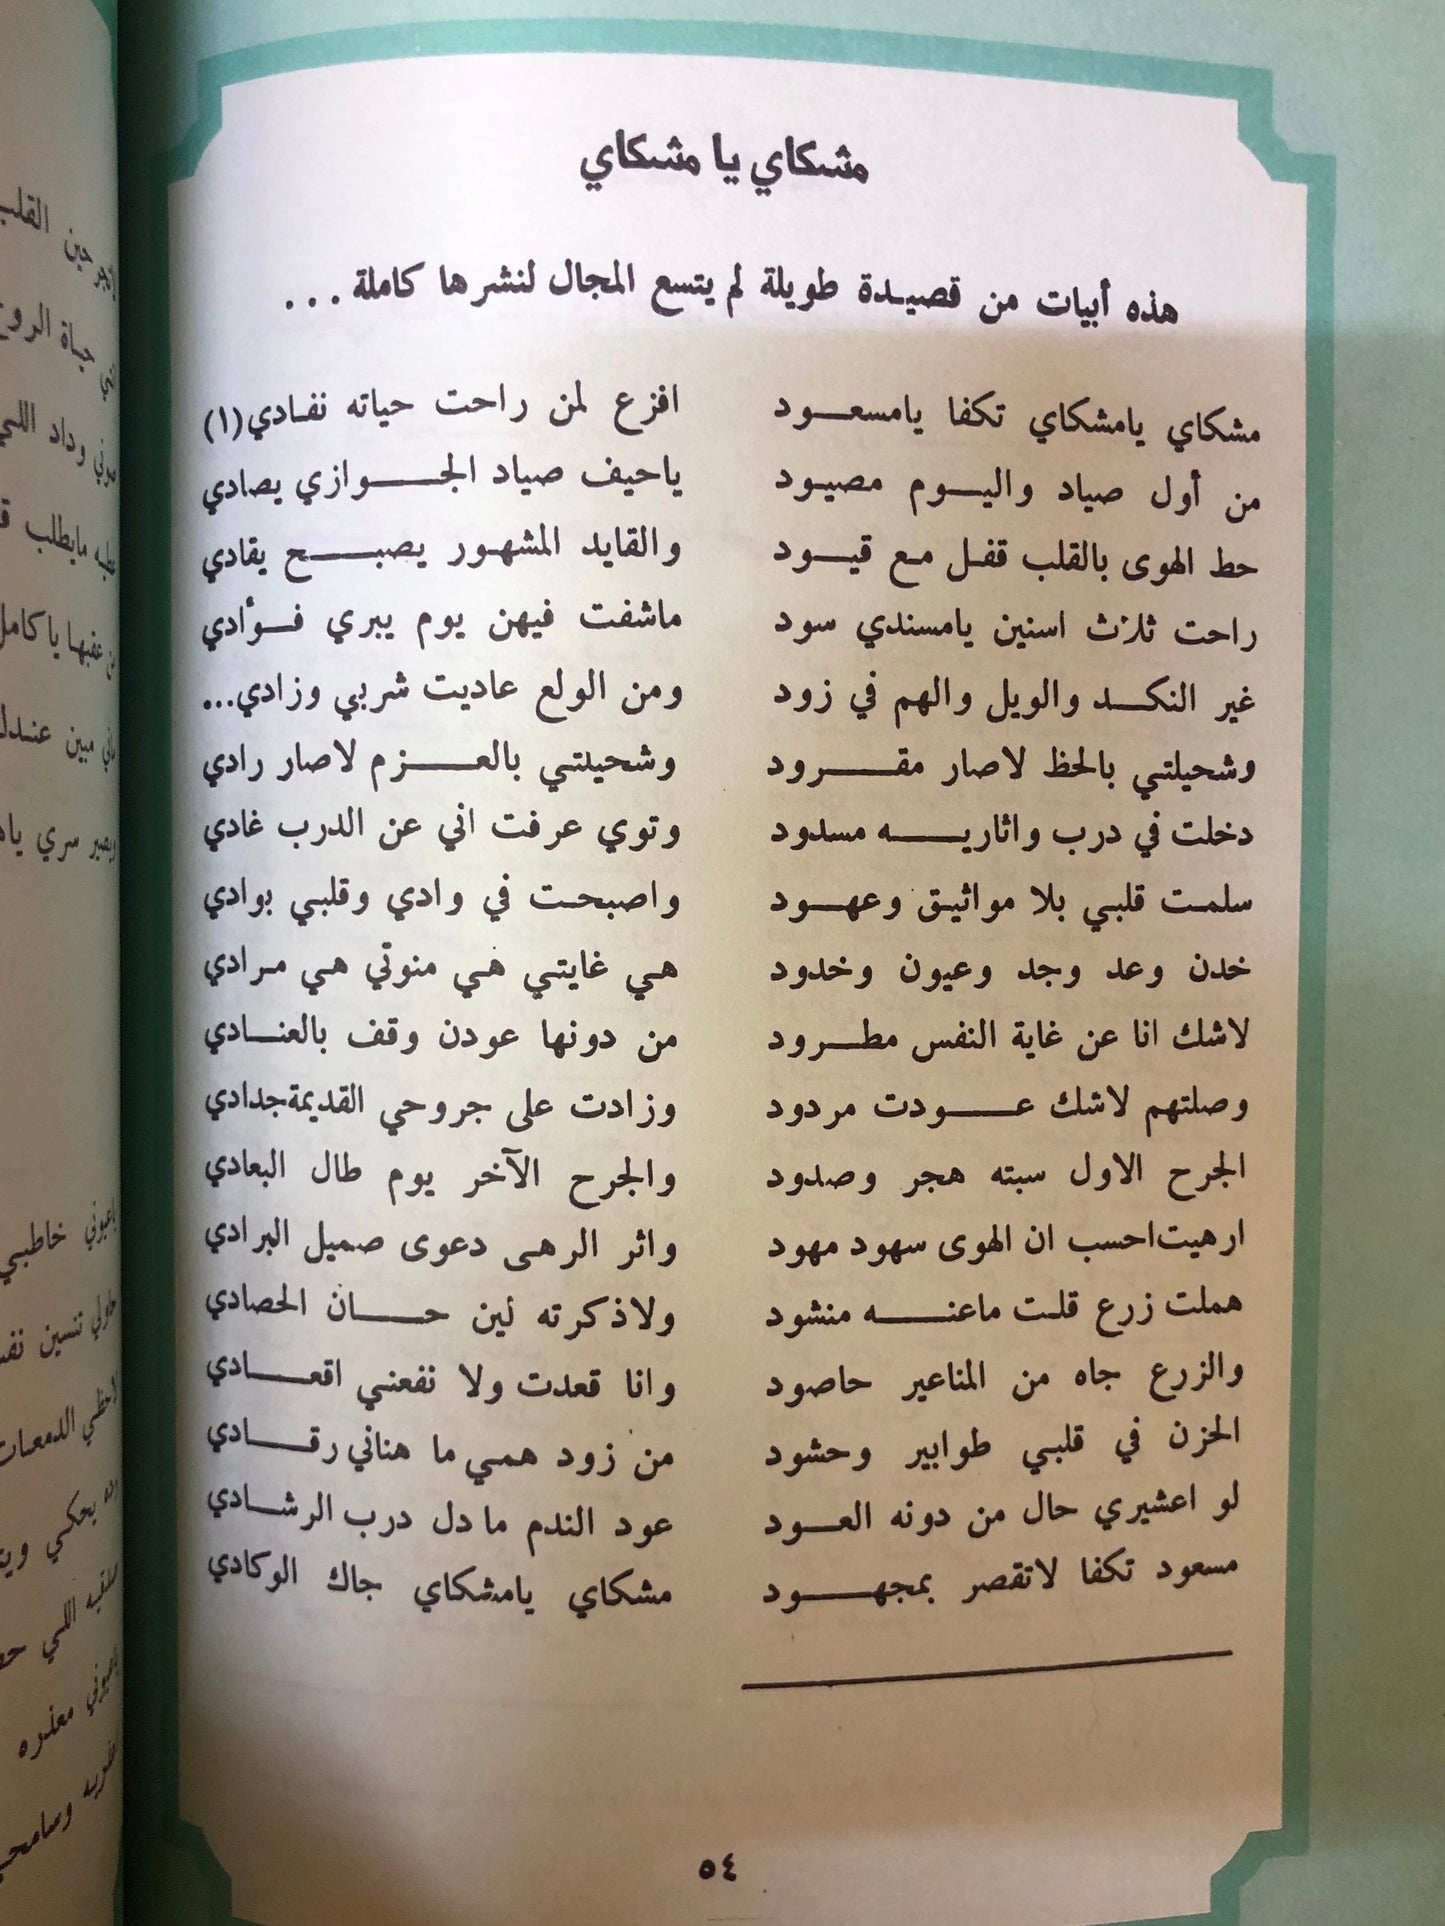 مشكاي يا مشكاي
هذه أبيات من قصيدة طويلة لم يتسع المجال لنشرها كاملة . . .
مشكاي يامشكاي تكفا يامسعود افزع لمن راحت حياته نفادي (١)
من أول صياد واليوم مصيود ياحيف صياد الجوازي يصادي
حط الهوى بالقلب قفل مع قيود والقايد المشهور يصبح يقادي
راحت ثلاث اسنين يامسندي سود ماشفت فيهن يوم يبري فؤادي
غير النكد والويل والهم في زود ومن الولع عاديت شربي وزادي...
وشحيلتي بالحظ لاصار مقرود وشحيلتي بالعزم لاصار رادي
دخلت في درب واثاريه مسدود وتوي عرفت اني عن الدرب غادي
سلمت قلبي بلا مواثيق وعهود واصبحت في وادي وقلبي بوادي
خدن وعد وجد وعيون وخدود هي غايتي هي منوتي هي مرادي
لاشك انا عن غاية النفس مطرود من دونها عودن وقف بالعنادي
وصلتهم لاشك عودت مردود وزادت على جروحي القديمة جدادي
الجرح الاول سبته هجر وصدود والجرح الآخر يوم طال البعادي
ارهيت احسب ان الهوى سهود مهود واثر الرهى دعوى صميل البرادي
هملت زرع قلت ماعنه منشود ولاذكرته لين حان الحصادي
والزرع جاه من المناعير حاصود وانا قعدت ولا نفعني اقعادي
الحزن في قلبي طوابير وحشود من زود همي ما هناني رقادي
لو اعشيري حال من دونه العود عود الندم مادل درب الرشادي
مسعود تكفا لاتقصر بمجهود مشكاي يامشكاي جاك الوكادي
٥٤
حين القلب
حياة الروح
وداد اللي
مايطلب
عقبها ياكامل
مبين
سري
خاطبي
تنسين
الدمعات
يحكي
اللي
معذره